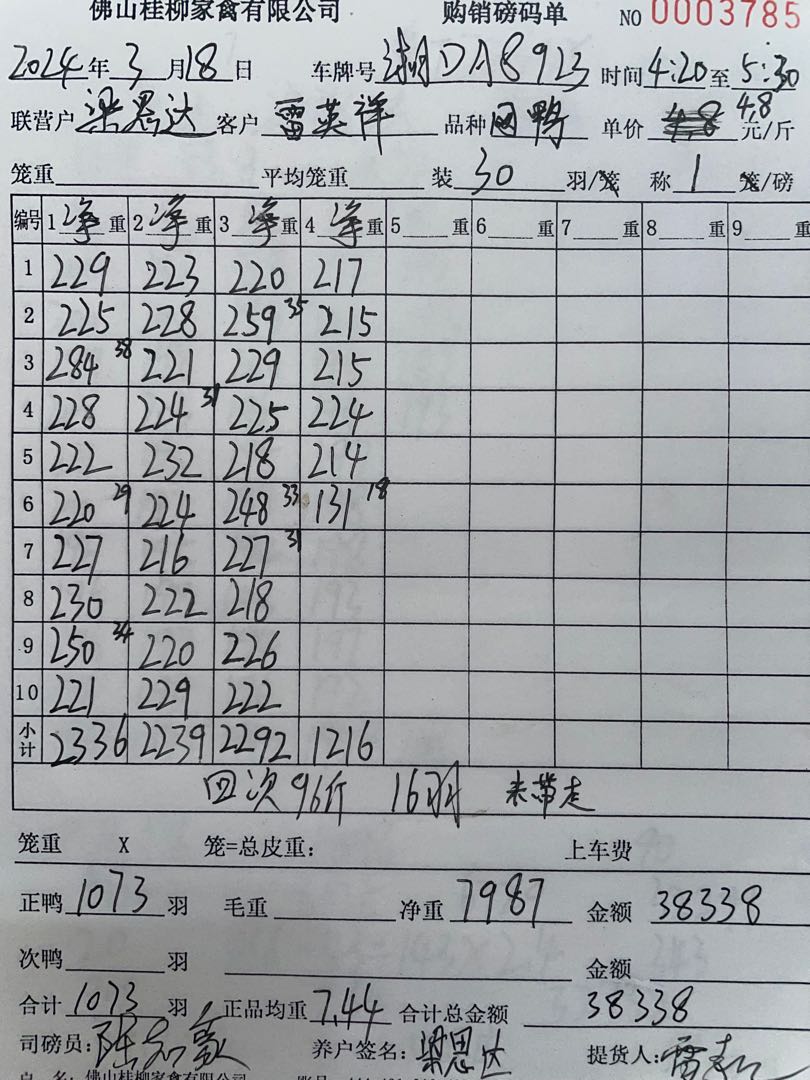 佛山桂柳家禽有限公司 购销磅码单 NO 0003785
2024年3月18日 车牌号 湘DA8923 时间4:20至5:30
联营户 梁思达 客户 雷英祥 品种 鸭 单价 4.8 元/斤
笼重 平均笼重 装 30 羽/笼 称 1 笼/磅
编号 1净重 2净重 3净重 4净重 5重 6重 7重 8重 9重
1 229 223 220 217
2 225 228 259 35 215
3 284 38 221 229 215
4 228 224 31 225 224
5 222 232 218 214
6 220 29 224 248 33 131 18
7 227 216 227 31
8 230 222 218
9 250 34 220 226
10 221 229 222
小计 2336 2239 2292 1216
回次96斤 16羽 未带走
笼重 X 笼=总皮重: 上车费
正鸭 1073 羽 毛重 净重 7987 金额 38338
次鸭 羽 金额
合计 1073 羽 正品均重 7.44 合计总金额 38338
司磅员: 陈 养户签名: 梁思达 提货人: 雷
户 名: 佛山桂柳家禽有限公司